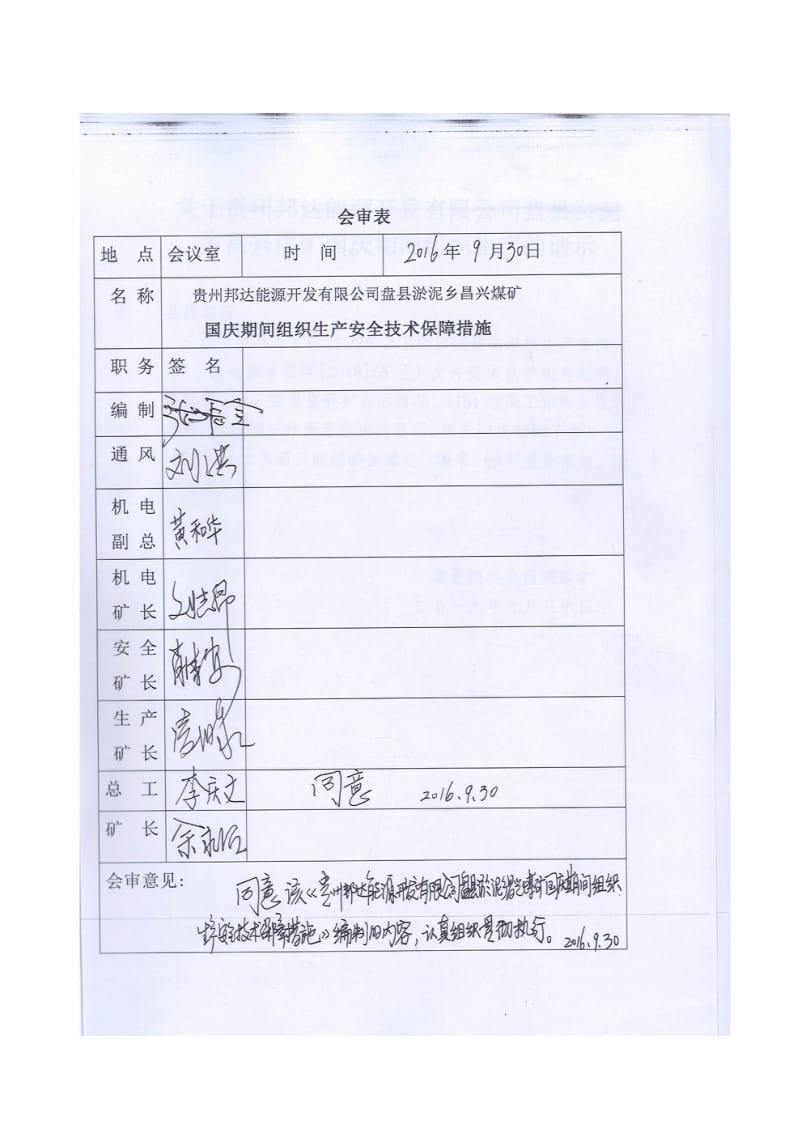 会审表
地 点 会议室 时 间 2016年9月30日
名 称 贵州邦达能源开发有限公司盘县淤泥乡昌兴煤矿
国庆期间组织生产安全技术保障措施
职 务 签 名
编 制
通 风
机 电
副 总 黄和华
机 电
矿 长
安 全
矿 长
生 产
矿 长
总 工 李庆文 同意 2016.9.30
矿 长 余永征
会审意见：
同意该《贵州邦达能源开发有限公司盘县淤泥乡昌兴煤矿国庆期间组织
生产安全技术保障措施》编制的内容，认真组织贯彻执行。
2016.9.30